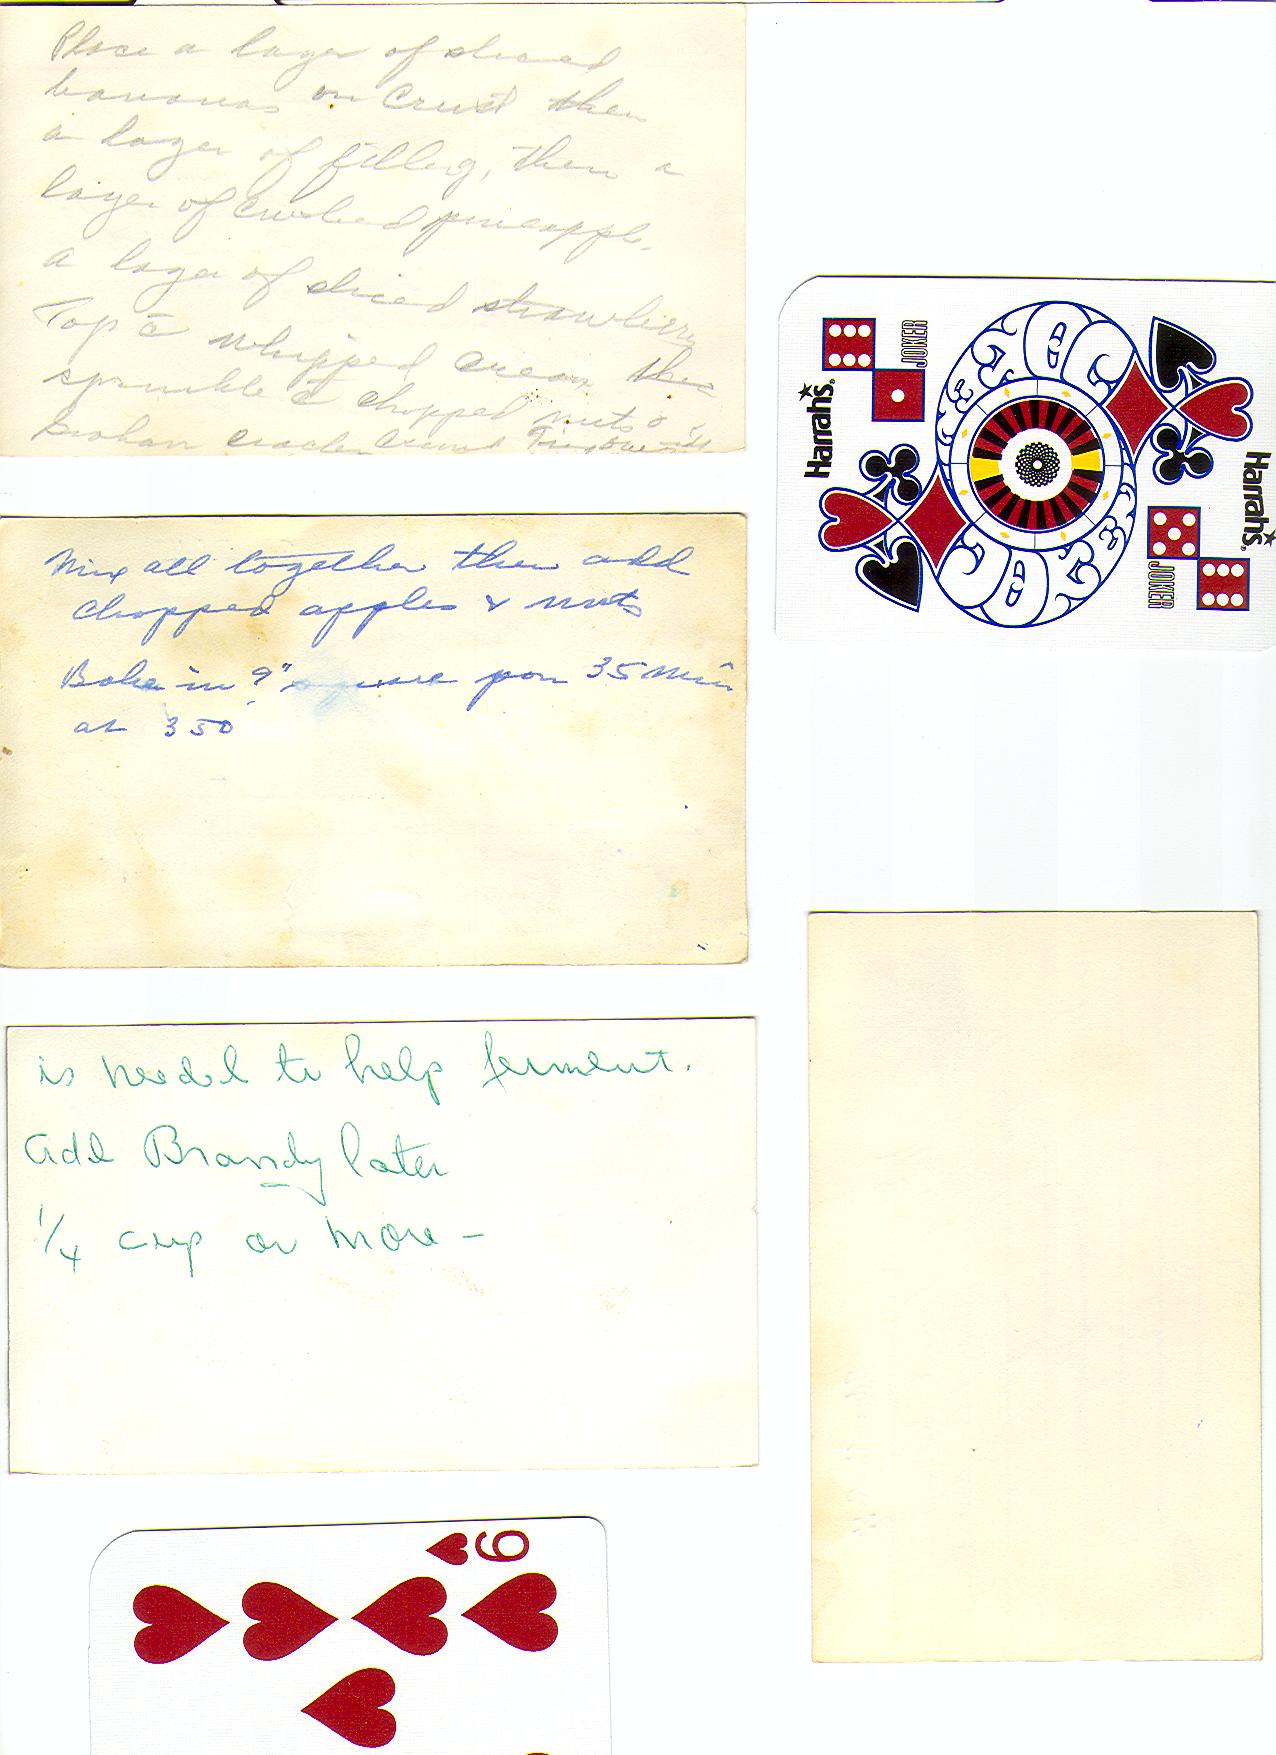 Place a layer of sliced
bananas on Crust then
a layer of filling, then a
layer of Crushed pineapple.
a layer of sliced strawberrys
Top c̄ whipped cream then
sprinkle c̄ chopped nuts &
Graham cracker crumbs
Mix all together then add
chopped apples & nuts
Bake in 9" square pan 35 Min
at 350°
is needed to help ferment.
add Brandy later
1/4 cup or more -
JOKER
Harrahs
Harrahs
JOKER
9